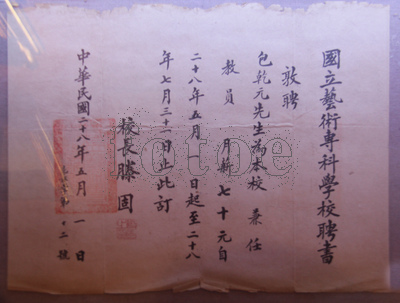 國立藝術專科學校聘書
敦聘
包乾元先生為本校 兼任
教員 月薪七十元自
二十八年五月一日起至二十八
年七月三一日止此訂
校長滕固
中華民國二十八年五月一日
字第十二號
fotoe